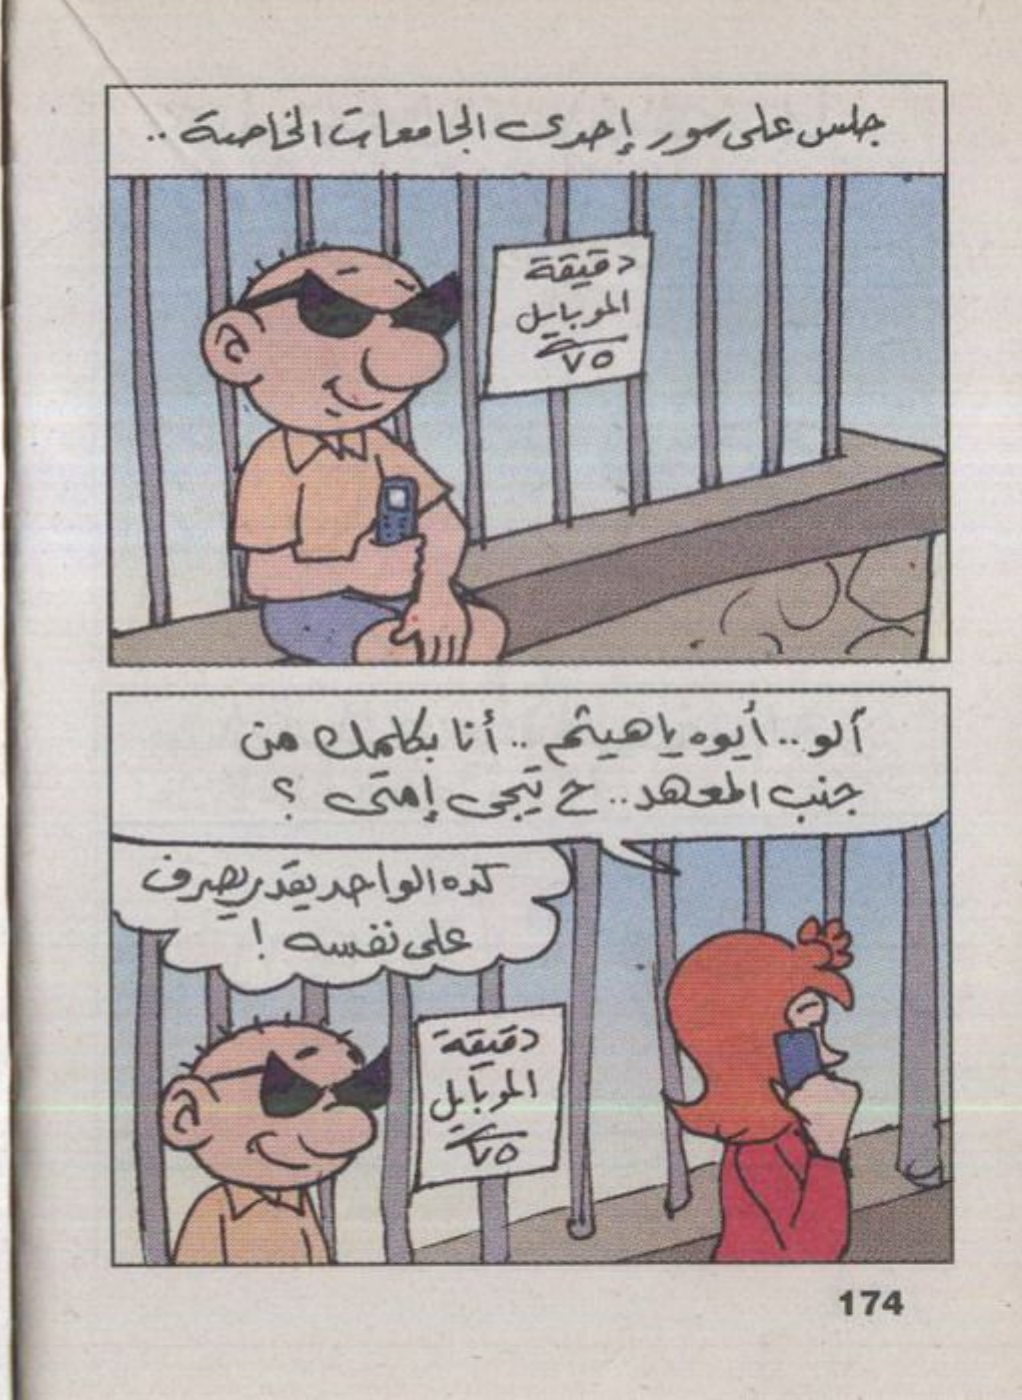 جلس على سور إحدى الجامعات الخاصة ..
دقيقة
الموبايل
٧٥
ألو .. أيوه يا هيثم .. أنا بكلمك من
جنب المعهد .. ح تيجى إمتى ؟
كده الواحد يقدر يصرف
على نفسه !
دقيقة
الموبايل
٧٥
174